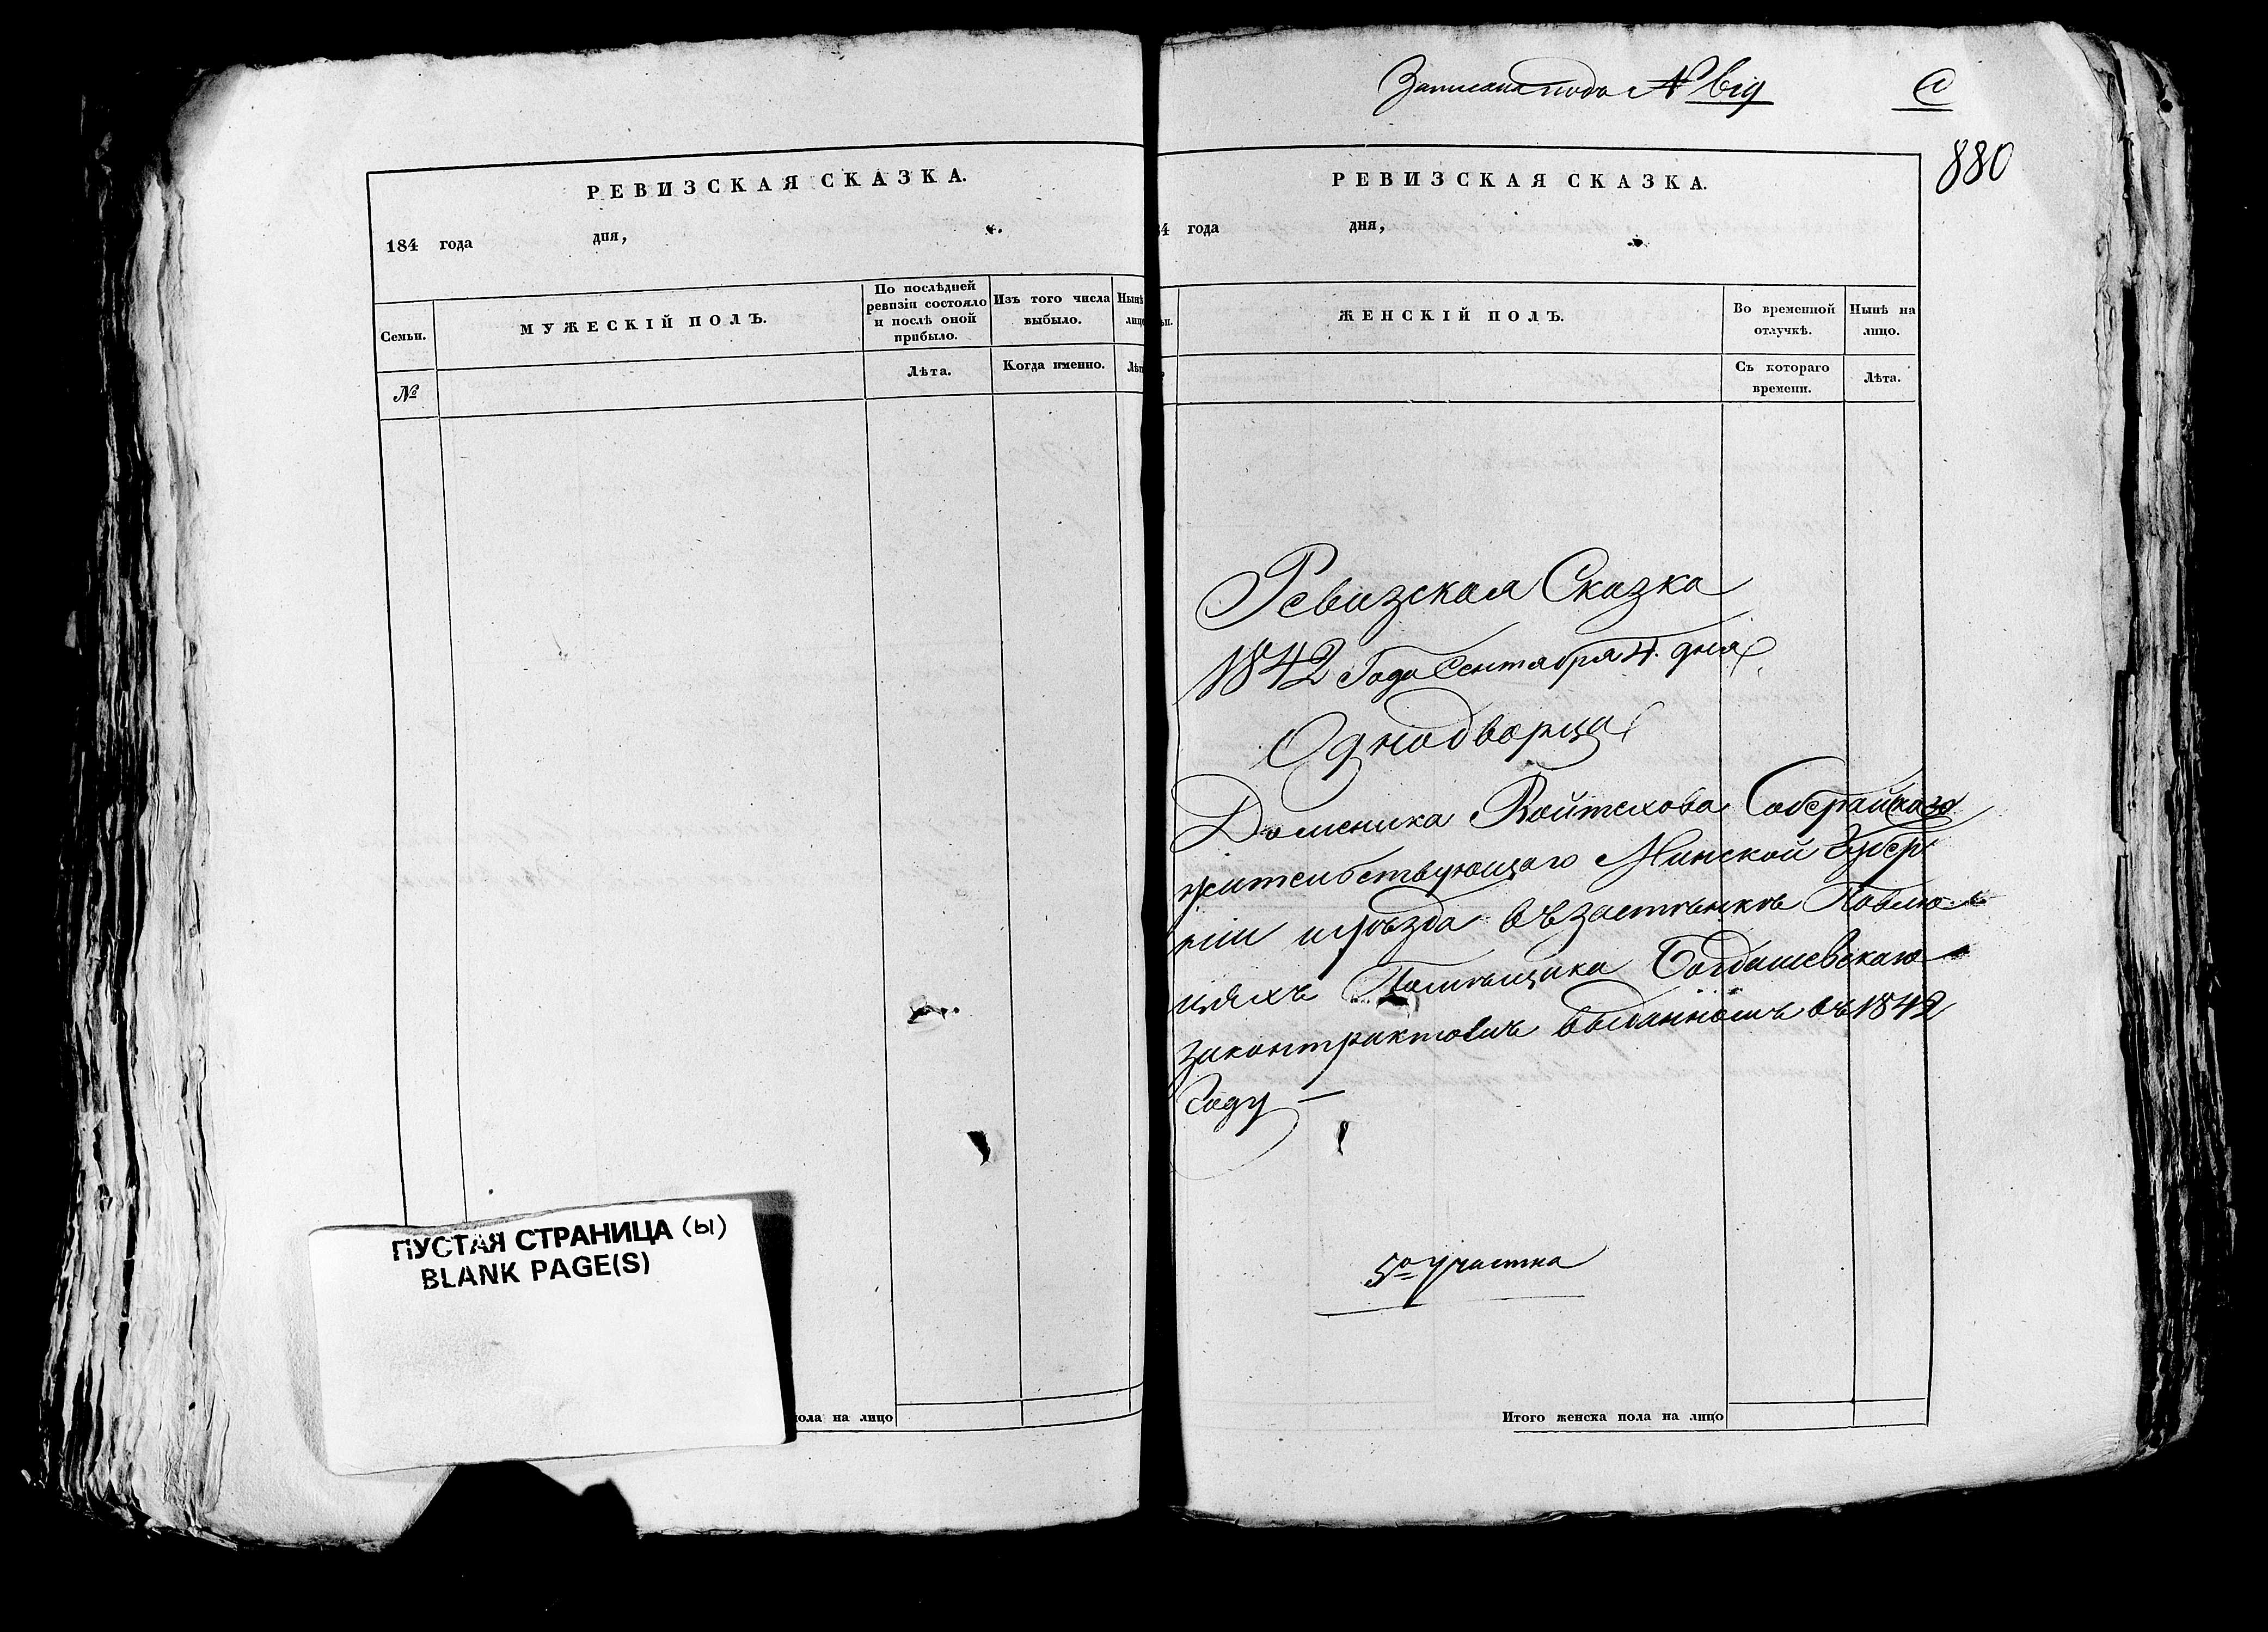 РЕВИЗСКАЯ СКАЗКА.
184 года дня,
Семьи.
МУЖЕСКІЙ ПОЛЪ.
По послѣдней ревизіи состояло и послѣ оной прибыло.
Изъ того числа выбыло.
Нынѣ
лицо
№
Лѣта.
Когда именно.
Лѣт
ПУСТАЯ СТРАНИЦА (Ы)
BLANK PAGE(S)
пола на лицо
Записана подъ №
880
РЕВИЗСКАЯ СКАЗКА.
84 года дня,
ЖЕНСКІЙ ПОЛЪ.
Во временной отлучкѣ.
Нынѣ на лицо.
Съ котораго времени.
Лѣта.
Ревизская Сказка
1842 Года Сентября 4. дня
Однодворца
Доменика Войтехова
жительствующаго Минской Губер
ніи и уѣзда въ застѣнкѣ
Помѣщика Богдашевскаго
законтрактомъ выданномъ въ 1842
Году —
5го участка
Итого женска пола на лицо